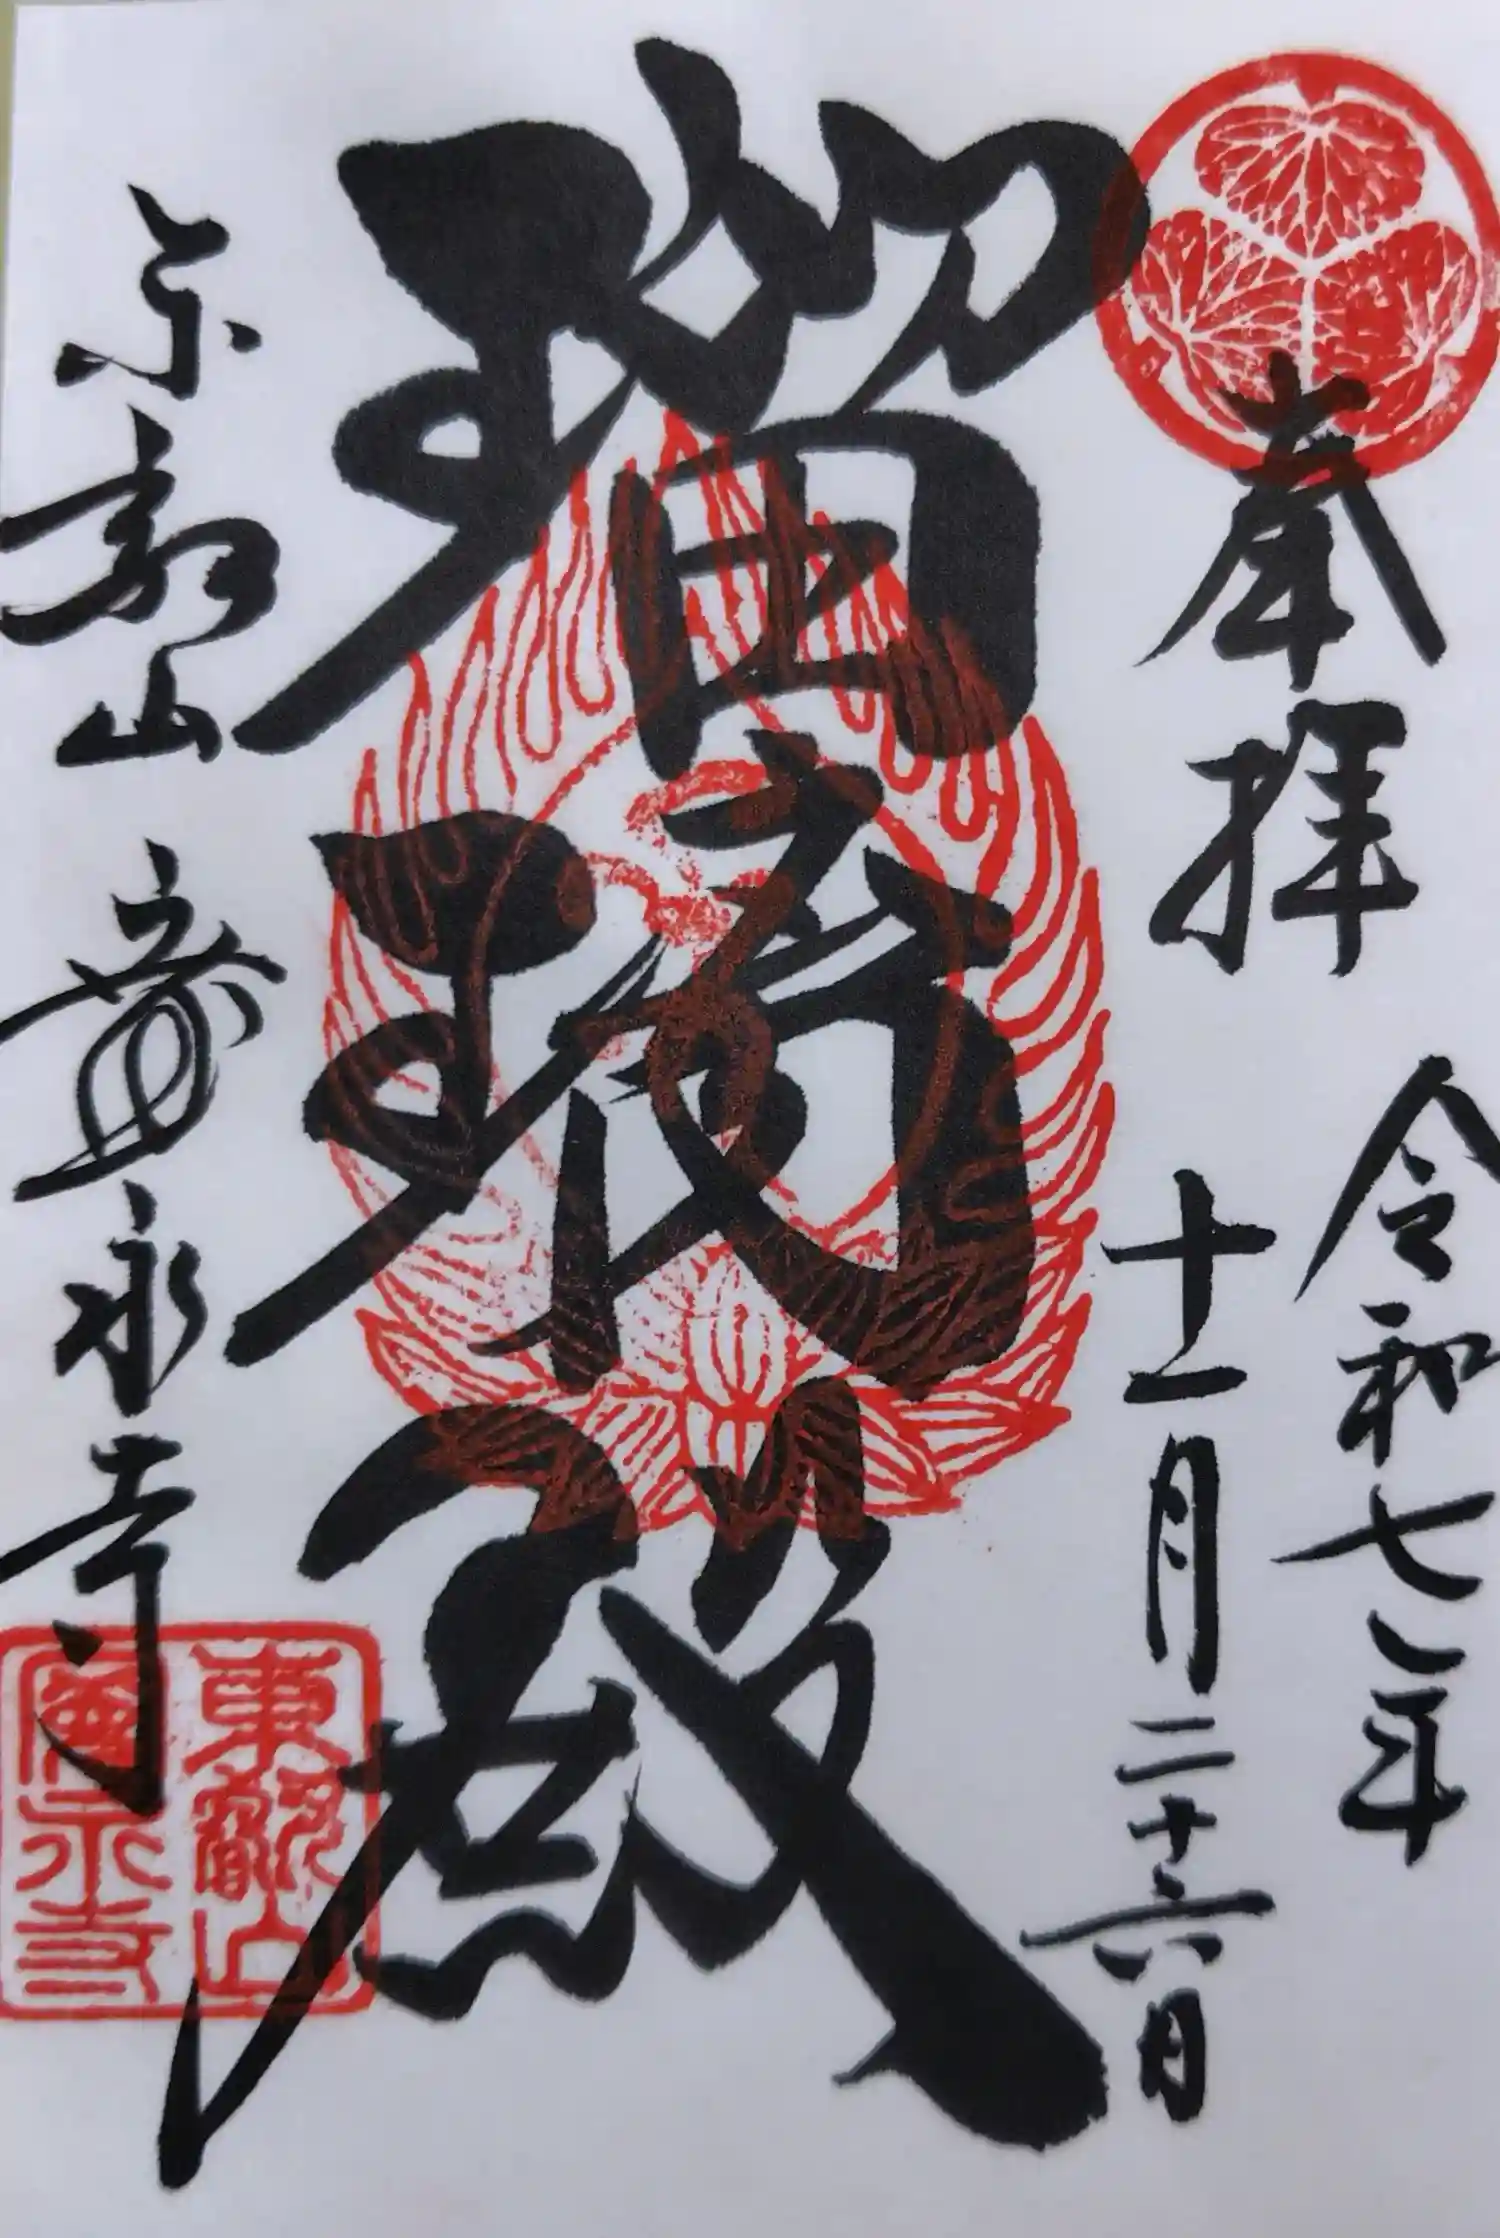 奉拝
令和七年
十一月二十六日
瑠璃殿
東叡山 寛永寺
東叡山
寛永寺